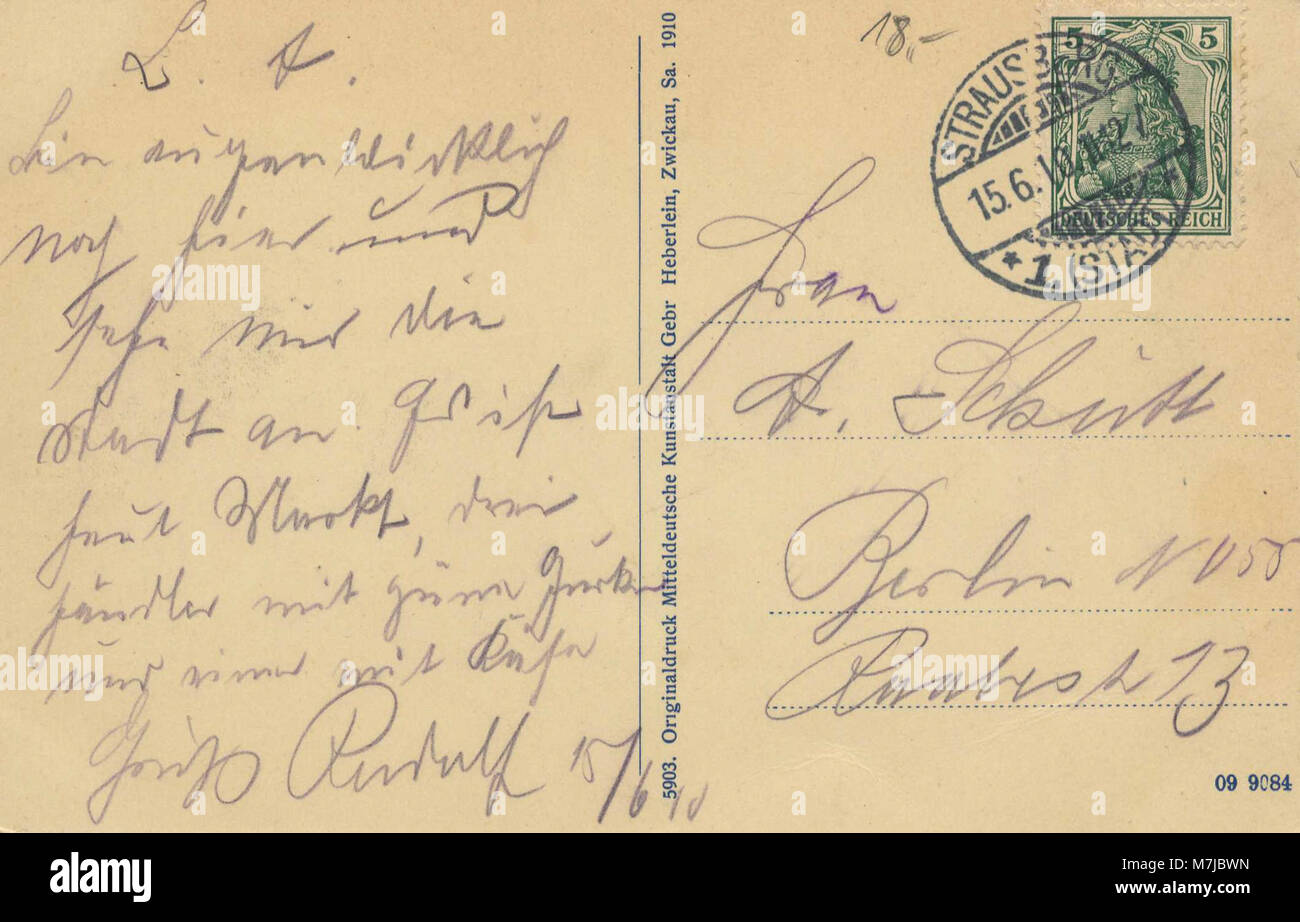 L. A.
bin augenblicklich
noch hier und
sehe mir die
Stadt an. Es ist
heut Markt, drei
händler mit grüne Gurken
und einer mit Käse
Gruß Rudolf 15/6 10
5903. Originaldruck Mitteldeutsche Kunstanstalt Gebr Heberlein, Zwickau, Sa. 1910
18,-
5 5
DEUTSCHES REICH
STRAUSBERG
15.6.10.11-12
* 1. (STADT)
Frau
A. Schütt
Berlin NO 55
13
09 9084
alamy
Image ID: M7JBWN
www.alamy.com